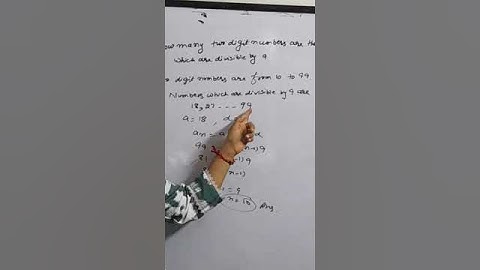 ow many two digit numbers are the
which are divisible by 9
digit numbers are from 10 to 99
Numbers which are divisible by 9 are
18, 27 - - - 99
a = 18 , d =
an = a
99
n-1) 9
81 -1) 9
n-1)
= 9
n = 10 Ans